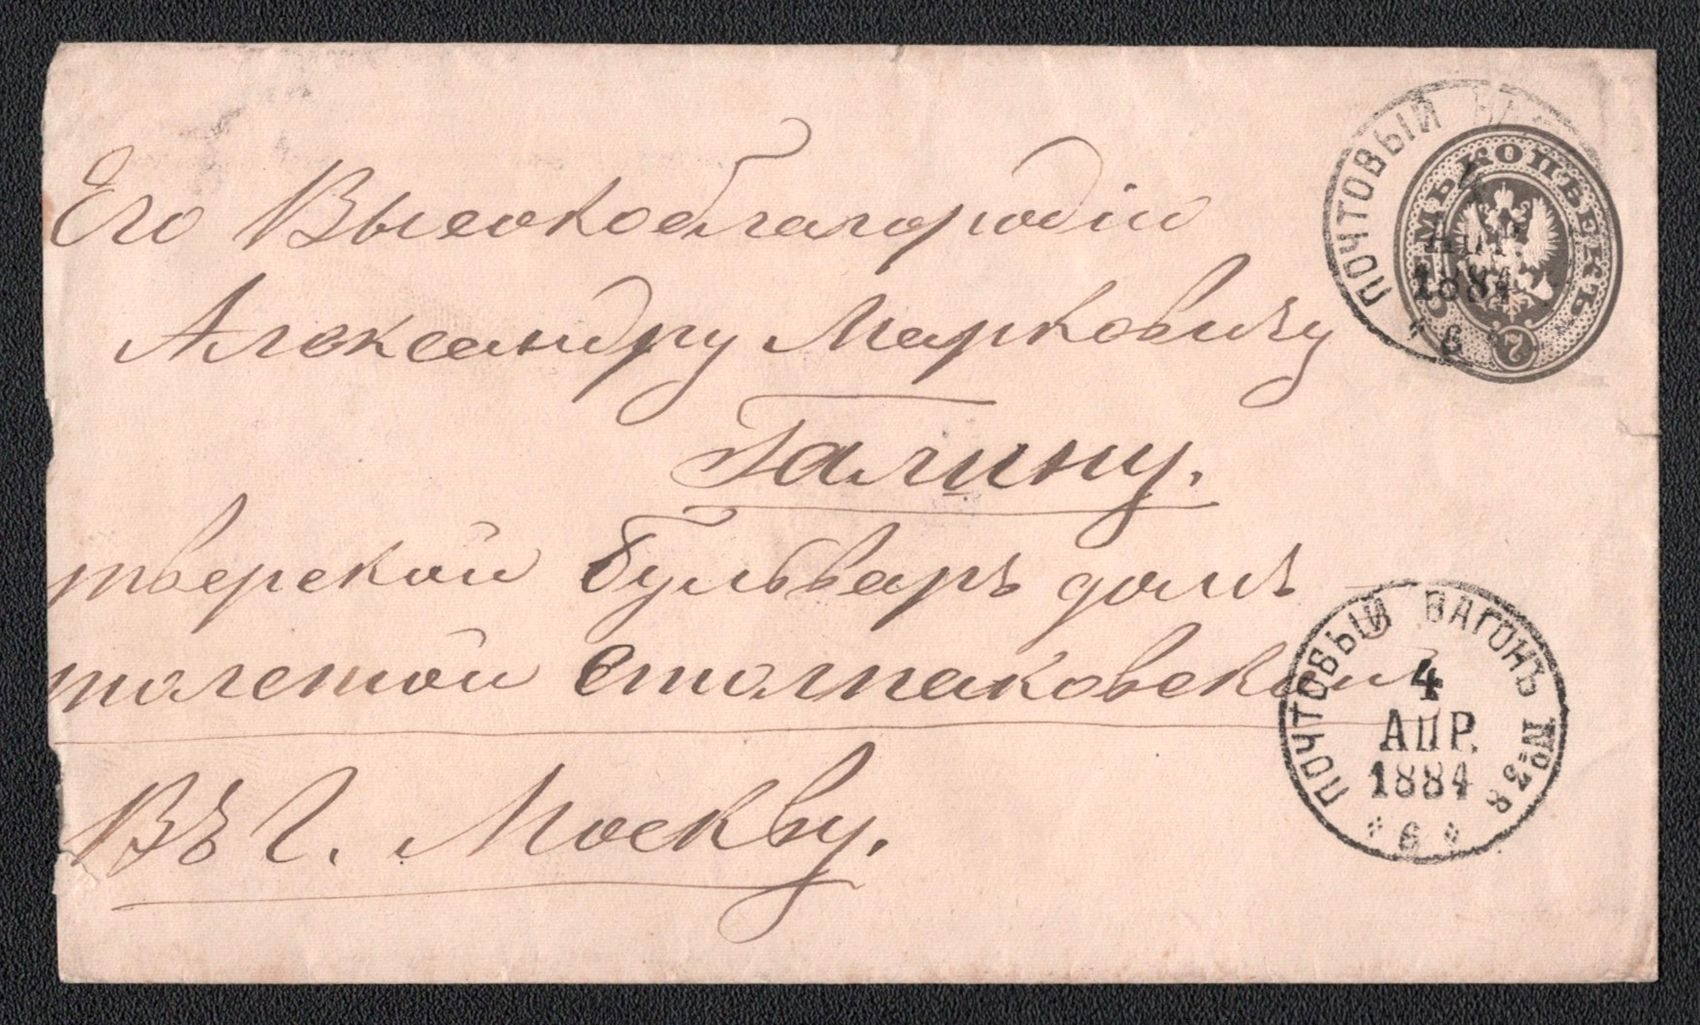 Его Высокоблагородію
Александру Марковичу
Галину.
тверской бульваръ домъ
толстой Столпаковской
Въ г. Москву.
ПОЧТОВЫЙ ВА
4
АПР.
1884
6
СЕМЬ КОПѢЕКЪ
7
ПОЧТОВЫЙ ВАГОНЪ № 38
4
АПР.
1884
6